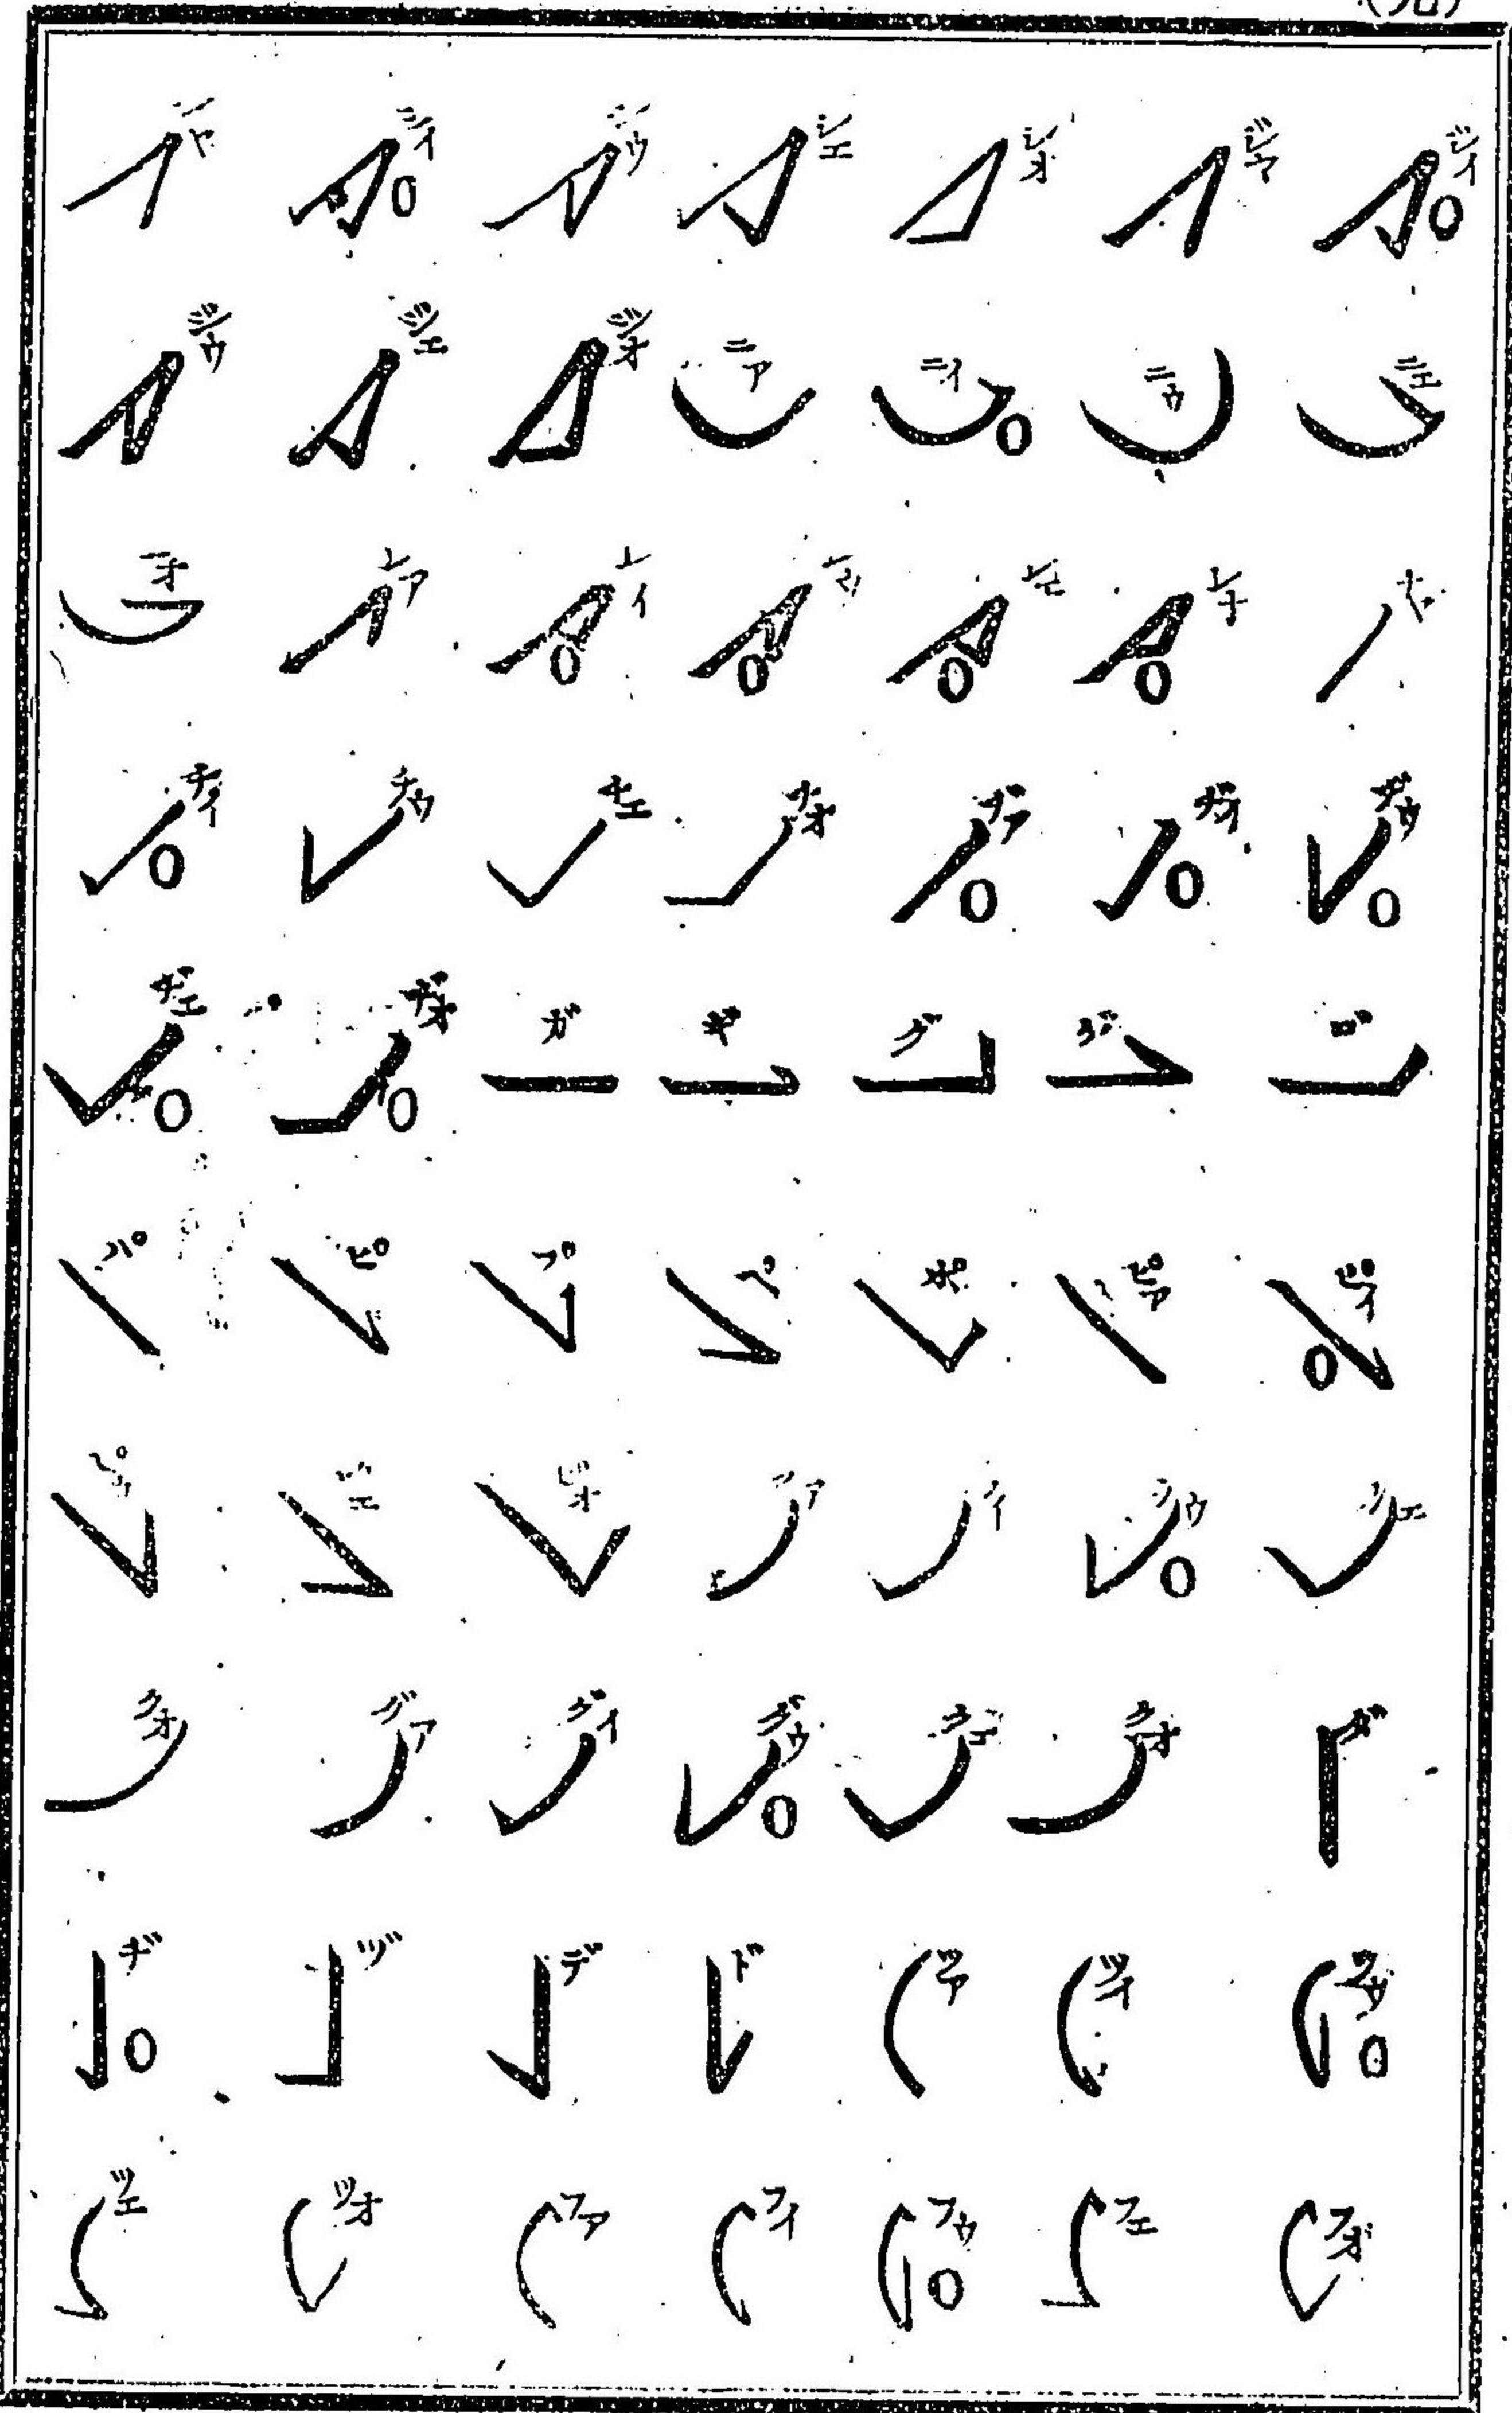 シヤ シイ シウ シエ シオ ジア ジイ
ジウ ジエ ジオ ニア ニイ ニウ ニエ
ニオ レア レイ レウ レエ レオ
チイ チウ チエ チオ ヂア ヂイ ヂウ
ヂエ ヂオ ガ ギ グ ゲ ゴ
パ ピ プ ペ ポ ピア ピイ
ピウ ピエ ピオ クア クイ クウ クエ
クオ グア グイ グウ グエ グオ ダ
ヂ ヅ デ ド ツア ツイ ツウ
ツエ ツオ フア フイ フウ フエ フオ